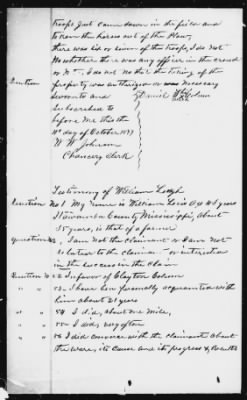 troops just came down in the field and
taken the horses out of the Plow,
there was six or seven of the troops, I do not
No whether there was any officer in the crowd
or not, I do not no that the taking of the
Question property was authorized or was necessary
Sworn to and
Subscribed to
before me this the
10th day of October 1877
W W Johnson
Chancery Clerk
Daniel
his
mark
Testimony of William
Question No 1 My name is William age 48 years
I live in County Mississippi, about
35 years, is that of a farmer
Question No 2, I am not the claimant or I am not
related to the claimant or interested
in the success in the claim
Question No 52 In favor of Clayton
" " 53 I have been formally acquainted with
him about 21 years
" " 54 I did, about one mile,
" " 55 I did, very often
" " 56 I did converse with the claimant about
the war, its cause and its progress &